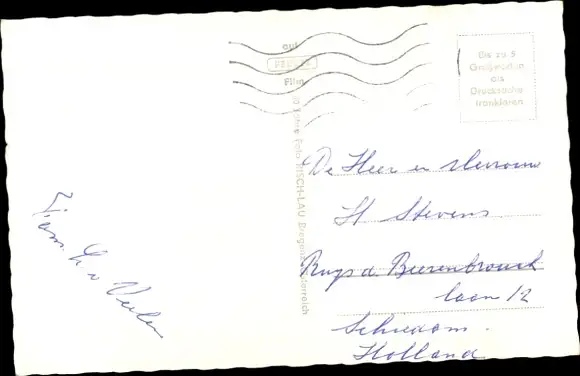 auf
Film
Bis zu 5
Grußworten
als
Drucksache
frankieren
Foto RISCH-LAU Bregenz
De Heer en Mevrouw
St Stevens
Ruys d. Beerenbrouck
laan 12
Schiedam.
Holland
Fam. G. v